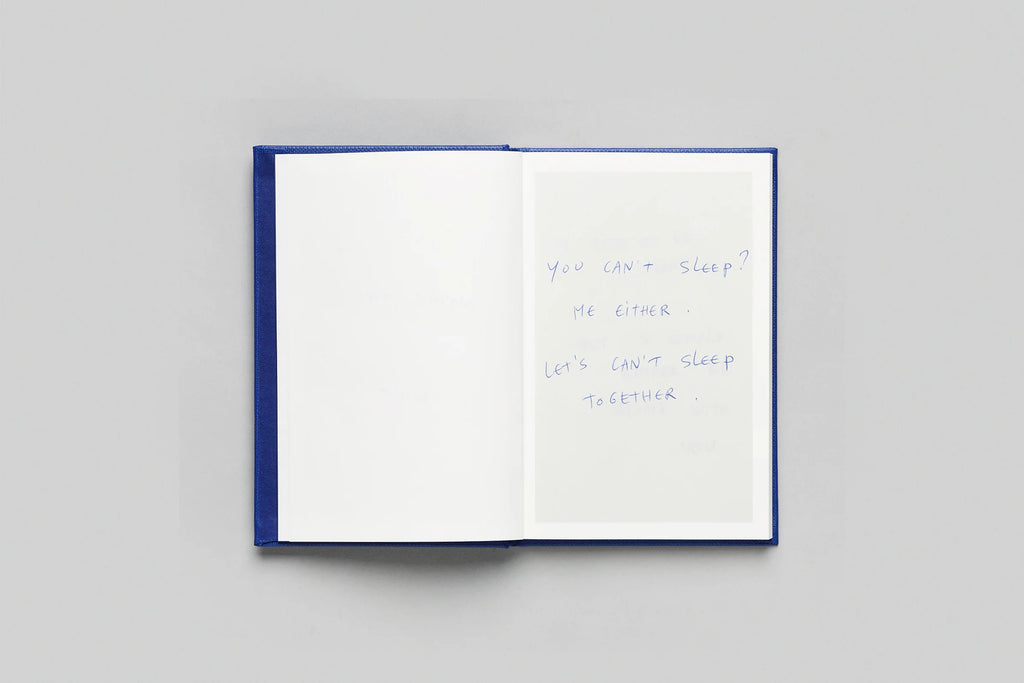 YOU CAN'T SLEEP?
ME EITHER.
LET'S CAN'T SLEEP
TOGETHER.